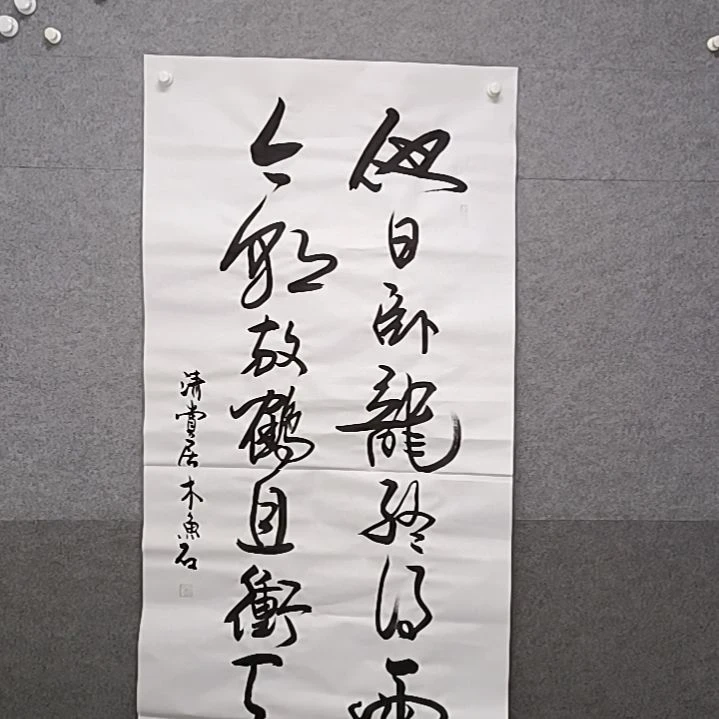 他日卧龍終得雨
今朝放鶴且衝天
清賞居木魚石